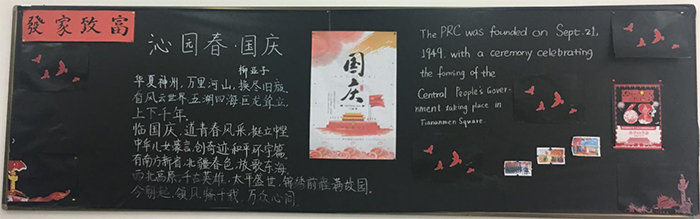 發家致富
沁园春·国庆
柳亚子
华夏神州,万里河山,换尽旧颜。
看风云世界,五湖四海,巨龙耸立,
上下千年。
临国庆,道青春风采,挺立中坚
中华儿女豪言,创奇迹,和平环宇篇。
有南方新省,北疆春色,放歌东海,
西北高原,千古英雄,太平盛世,锦绣前程满故园。
今朝起,领风骚十载,万众心间
国庆
The PRC was founded on Sept. 21,
1949. with a ceremony celebrating
the foming of the
Central People's Gover-
nment taking place in
Tiananmen Square.